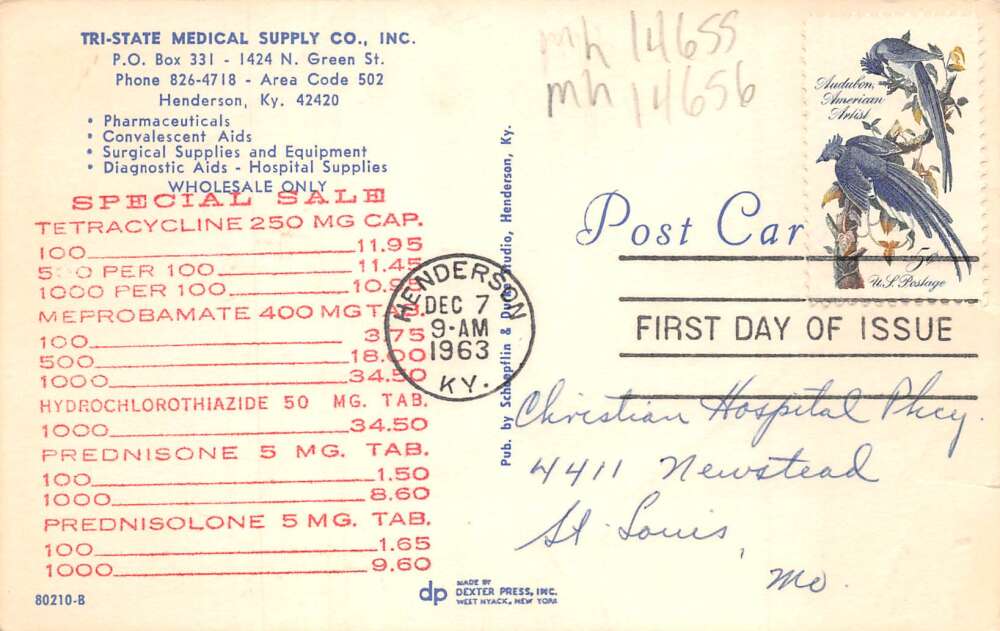 TRI-STATE MEDICAL SUPPLY CO., INC.
P.O. Box 331 - 1424 N. Green St.
Phone 826-4718 - Area Code 502
Henderson, Ky. 42420
• Pharmaceuticals
• Convalescent Aids
• Surgical Supplies and Equipment
• Diagnostic Aids - Hospital Supplies
WHOLESALE ONLY
SPECIAL SALE
TETRACYCLINE 250 MG CAP.
100 11.95
PER 100 11.45
1000 PER 100
MEPROBAMATE 400 MG TAB.
100 3.75
500 18.00
1000 34.50
HYDROCHLOROTHIAZIDE 50 MG. TAB.
1000 34.50
PREDNISONE 5 MG. TAB.
100 1.50
1000 8.60
PREDNISOLONE 5 MG. TAB.
100 1.65
1000 9.60
80210-B
mh 14655
mh 14656
Audubon,
American
Artist
5¢
U.S. Postage
Post Car
HENDERSON
DEC 7
9-AM
1963
KY.
FIRST DAY OF ISSUE
Pub. by & Studio, Henderson, Ky.
Christian Hospital Phcy.
4411 Newstead
St. Louis,
Mo.
dp
MADE BY
DEXTER PRESS, INC.
WEST NYACK, NEW YORK